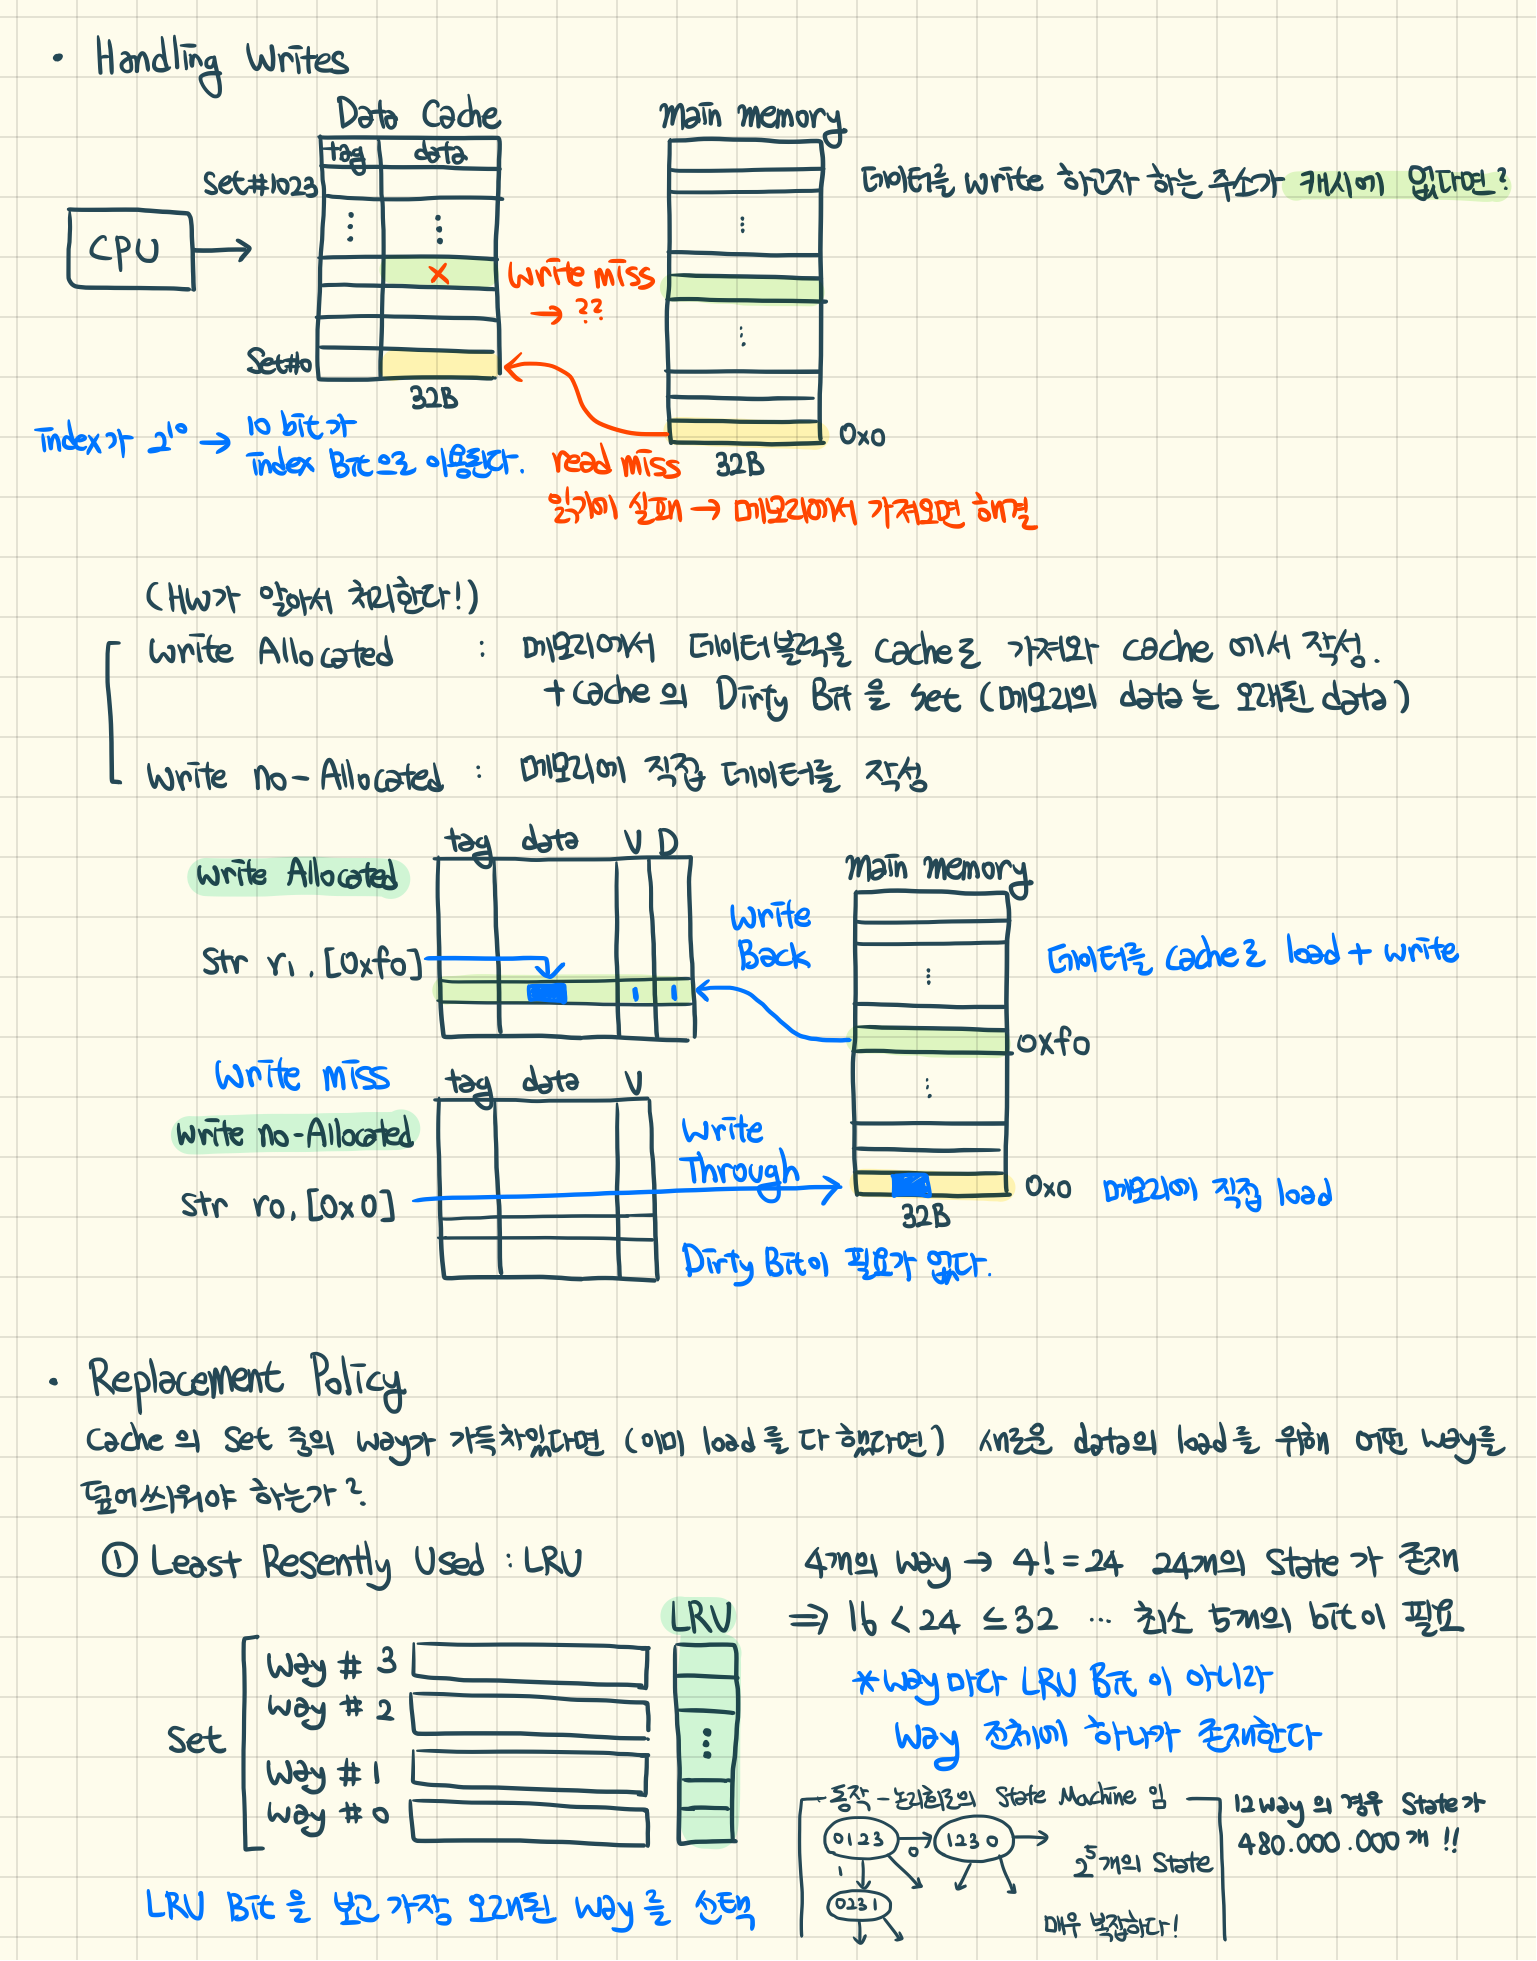 · Handling Writes
Data Cache
Main memory
tag data
Set#1023
데이터를 write 하고자 하는 주소가 캐시에 없다면?
CPU
×
Write miss
→ ??
Set#0
32B
0x0
index가 2¹⁰ → 10 bit가
index Bit으로 이용된다.
read miss
32B
읽기에 실패 → 메모리에서 가져오면 해결
(HW가 알아서 처리한다!)
Write Allocated : 메모리에서 데이터블럭을 Cache로 가져와 cache 에서 작성.
+ cache의 Dirty Bit 을 set (메모리의 data는 오래된 data)
Write no-Allocated : 메모리에 직접 데이터를 작성
tag data V D
Write Allocated
Main memory
Write
Back
Str r1, [0xf0]
데이터를 cache로 load + write
1 1
0xf0
Write miss
tag data V
Write no-Allocated
Write
Through
Str r0, [0x0]
0x0
메모리에 직접 load
32B
Dirty Bit이 필요가 없다.
· Replacement Policy
Cache의 Set 줄의 way가 가득차있다면 (이미 load를 다 했다면) 새로운 data의 load를 위해 어떤 way를
덮어씌워야 하는가?
① Least Resently Used : LRU
4개의 way → 4! = 24 24개의 State가 존재
LRU
⇒ 16 < 24 ≤ 32 … 최소 5개의 bit이 필요
Way # 3
Way # 2
*way마다 LRU Bit이 아니라
Way 전체에 하나가 존재한다
Set
Way # 1
Way # 0
동작 - 논리회로의 State Machine 임
0123
0
1230
1
0231
2⁵개의 State
매우 복잡하다!
12way의 경우 State가
480.000.000개 !!
LRU Bit을 보고 가장 오래된 way를 선택